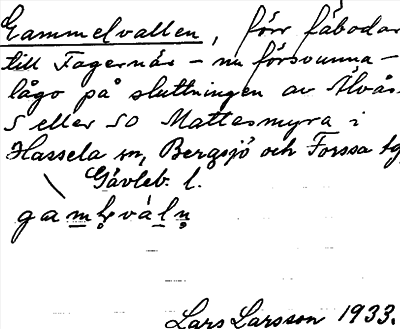 Gammelvallen, förr fäbodar
till Fagernäs – nu försvunna –
lågo på sluttningen av Älvås
S eller SO Mattesmyra i
Hassela sn, Bergsjö och Forssa tg
Gävleb. l.
Lars Larsson 1933.